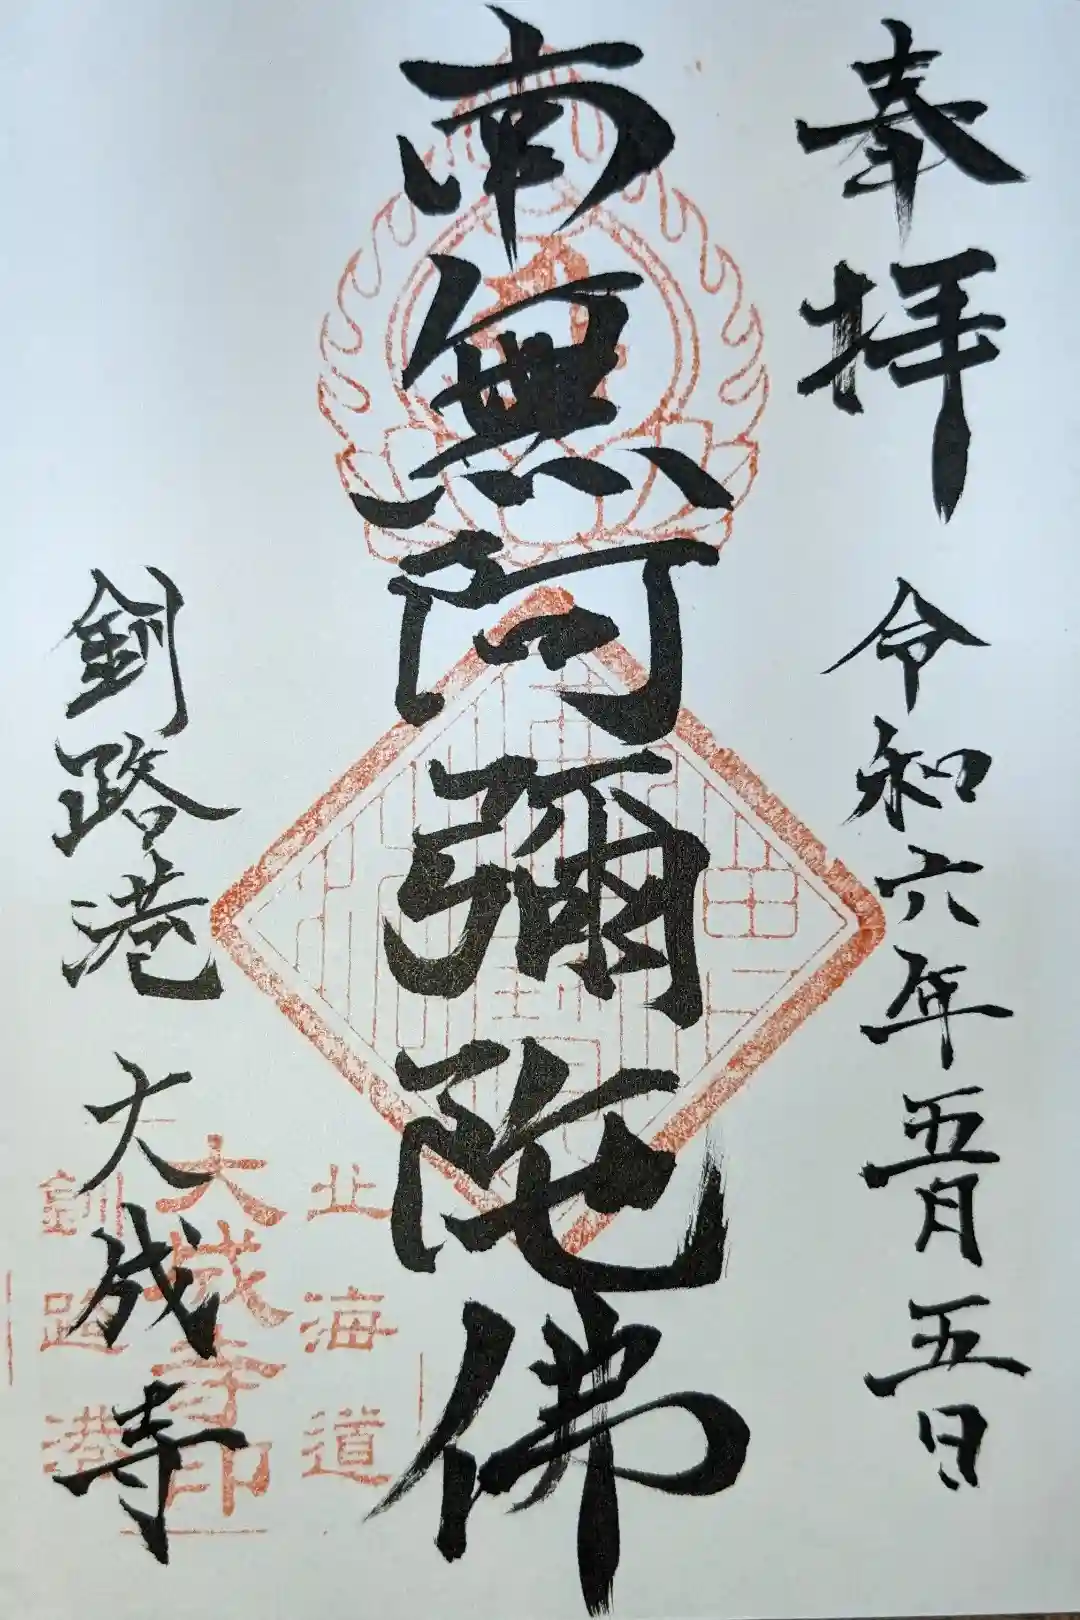 奉拝
令和六年五月五日
南無阿彌陀佛
釧路港
大成寺
北海道
大成寺印
釧路港